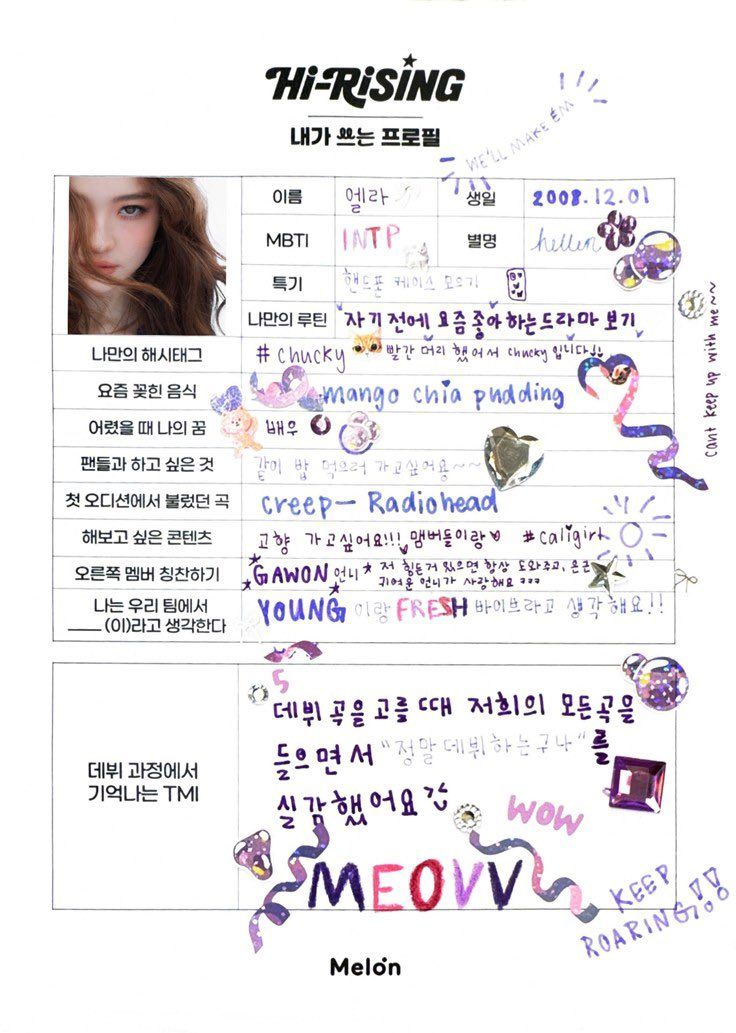 Hi-RiSING
내가 쓰는 프로필
WE'LL MAKE EM
이름 엘라 생일 2008.12.01
MBTI INTP 별명 hellen
특기 핸드폰 케이스 모으기
나만의 루틴 자기 전에 요즘 좋아하는 드라마 보기
나만의 해시태그 # chucky 빨간 머리 했어서 chucky 입니다!!
요즘 꽂힌 음식 mango chia pudding
어렸을 때 나의 꿈 배우
팬들과 하고 싶은 것 같이 밥 먹으러 가고싶어용~~
첫 오디션에서 불렀던 곡 creep — Radiohead
해보고 싶은 콘텐츠 고향 가고싶어요!!! 맴버들이랑 #caligirl
오른쪽 멤버 칭찬하기 GAWON 언니 저 힘든거 있으면 항상 도와주고, 은근
귀여운 언니가 사랑해요
나는 우리 팀에서
____ (이)라고 생각한다
YOUNG 이랑 FRESH 바이브라고 생각해요!!
cant keep up with me~~
데뷔 과정에서
기억나는 TMI
데뷔 곡을 고를 때 저희의 모든곡을
들으면서 "정말 데뷔하는구나"를
실감했어요
WOW
MEOVV
KEEP
ROARING!!
Melon